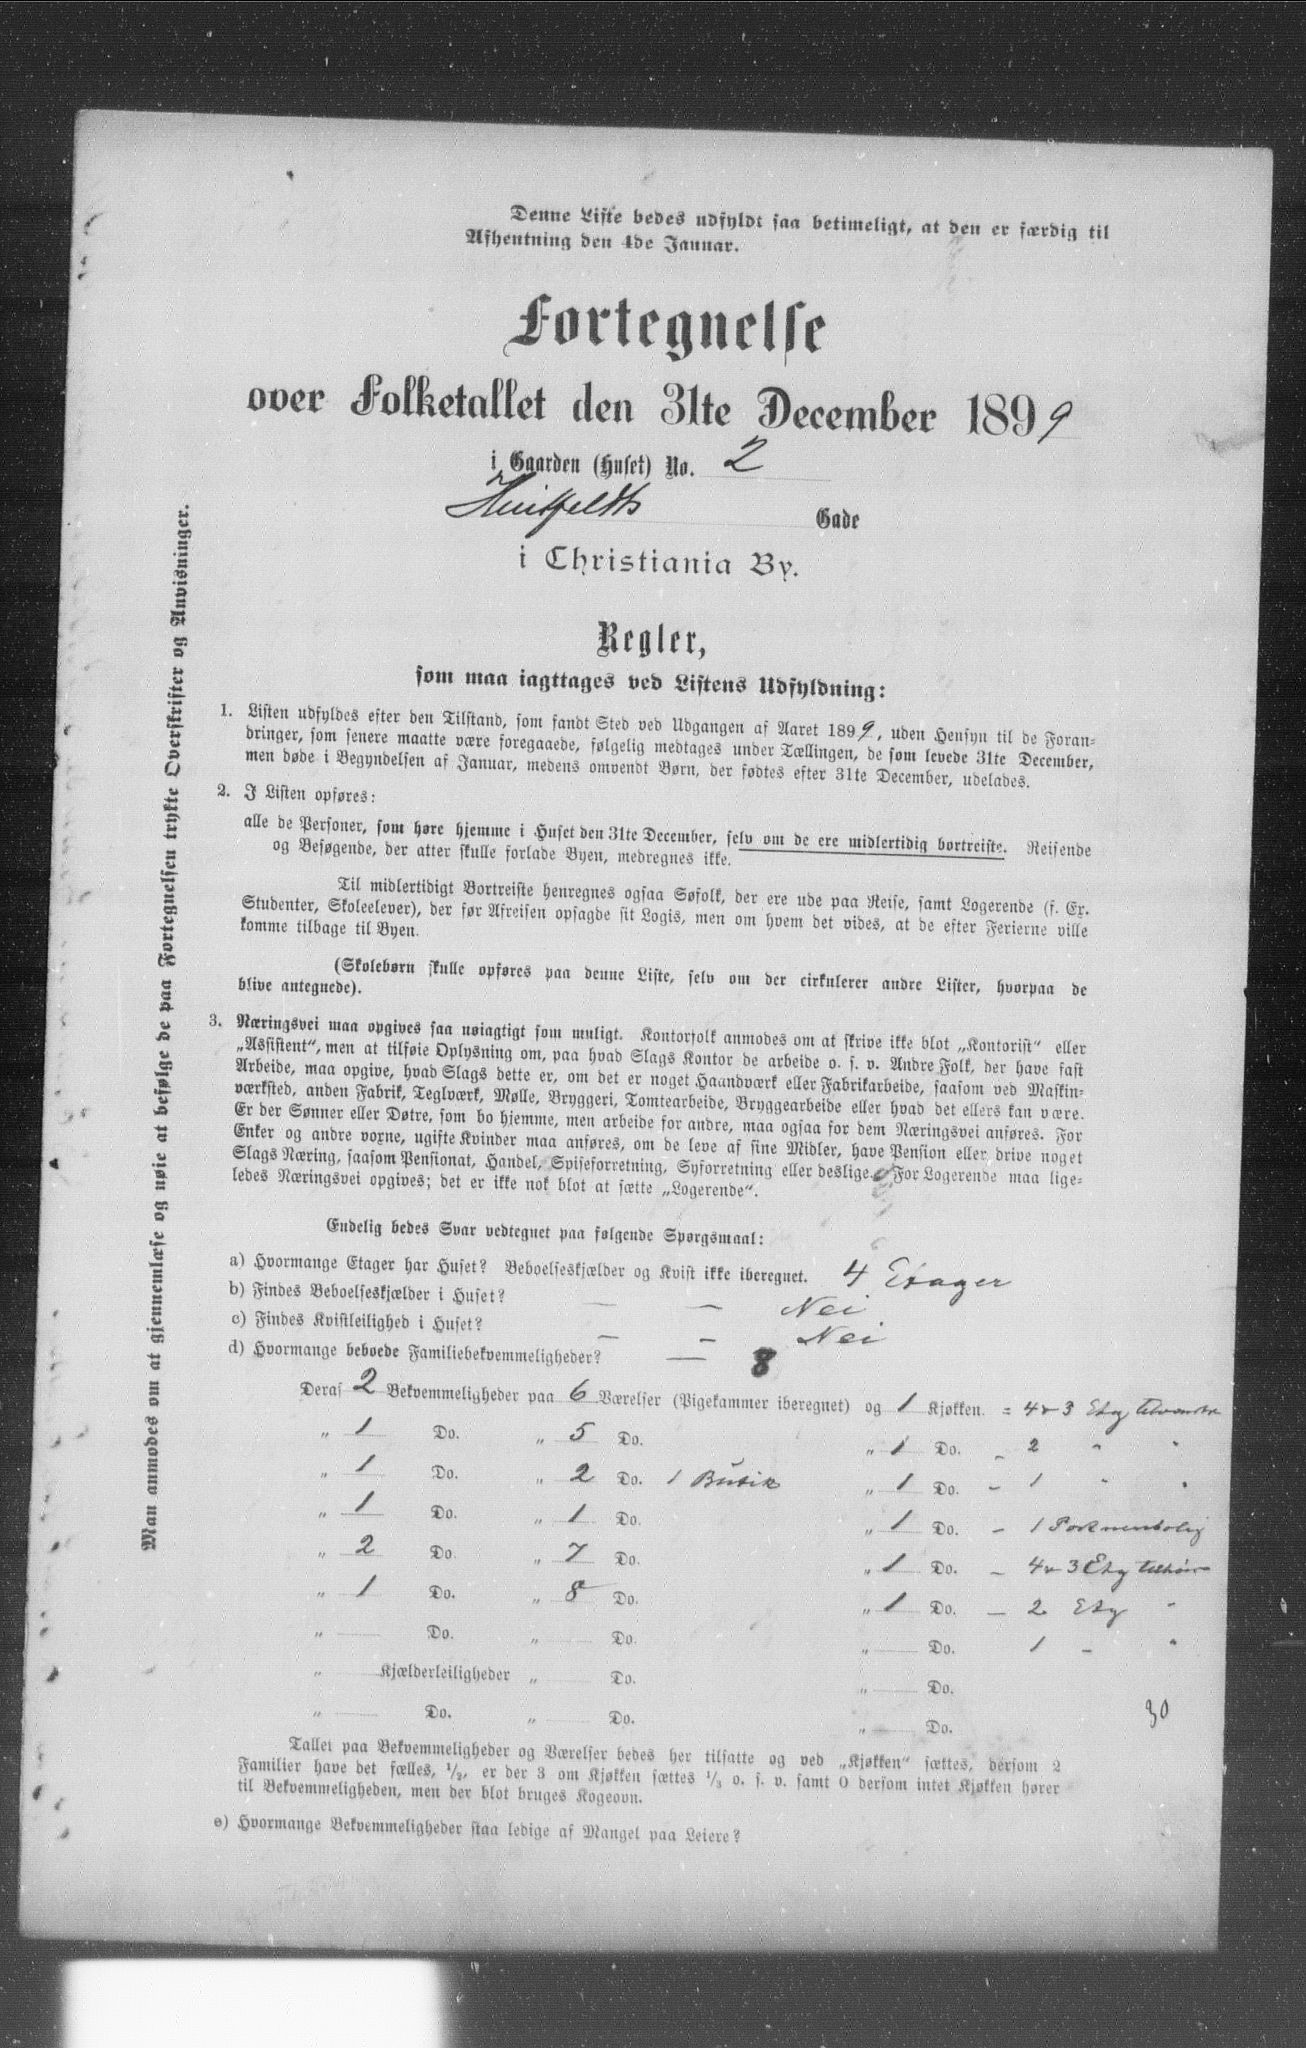 Denne Liste bedes udfyldt saa betimeligt, at den er færdig til
Afhentning den 4de Januar.
Fortegnelse
over Folketallet den 31te December 1899
i Gaarden (Huset) No. 2
Huitfeldts Gade
i Christiania By.
Regler,
som maa iagttages ved Listens Udfyldning:
1. Listen udfyldes efter den Tilstand, som fandt Sted ved Udgangen af Aaret 1899, uden Hensyn til de Foran-
dringer, som senere maatte være foregaaede, følgelig medtages under Tællingen, de som levede 31te December,
men døde i Begyndelsen af Januar, medens omvendt Børn, der fødtes efter 31te December, udelades.
2. I Listen opføres:
alle de Personer, som høre hjemme i Huset den 31te December, selv om de ere midlertidig bortreiste. Reisende
og Besøgende, der atter skulle forlade Byen, medregnes ikke.
Til midlertidigt Bortreiste henregnes ogsaa Søfolk, der ere ude paa Reise, samt Logerende (f. Ex.
Studenter, Skoleelever), der før Afreisen opsagde sit Logis, men om hvem det vides, at de efter Ferierne ville
komme tilbage til Byen.
(Skolebørn skulle opføres paa denne Liste, selv om der cirkulerer andre Lister, hvorpaa de
blive antegnede).
3. Næringsvei maa opgives saa nøiagtigt som muligt. Kontorfolk anmodes om at skrive ikke blot „Kontorist“ eller
„Assistent“, men at tilføie Oplysning om, paa hvad Slags Kontor de arbeide o. s. v. Andre Folk, der have fast
Arbeide, maa opgive, hvad Slags dette er, om det er noget Haandværk eller Fabrikarbeide, saasom ved Maskin-
værksted, anden Fabrik, Teglværk, Mølle, Bryggeri, Tomtearbeide, Bryggearbeide eller hvad det ellers kan være.
Er der Sønner eller Døtre, som bo hjemme, men arbeide for andre, maa ogsaa for dem Næringsvei anføres. For
Enker og andre vorne, ugifte Kvinder maa anføres, om de leve af sine Midler, have Pension eller drive noget
Slags Næring, saasom Pensionat, Handel, Spiseforretning, Syforretning eller deslige. For Logerende maa lige-
ledes Næringsvei opgives; det er ikke nok blot at sætte „Logerende“.
Endelig bedes Svar vedtegnet paa følgende Spørgsmaal:
a) Hvormange Etager har Huset? Beboelseskjælder og Kvist ikke iberegnet. 4 Etager
b) Findes Beboelseskjælder i Huset? — — Nei
c) Findes Kvistleilighed i Huset? — — Nei
d) Hvormange beboede Familiebekvemmeligheder? — 8
Deraf 2 Bekvemmeligheder paa 6 Værelser (Pigekammer iberegnet) og 1 Kjøkken. = 4 & 3 Etg
„ 1 Do. „ 5 Do. „ 1 Do. – 2 " "
„ 1 Do. „ 2 Do. 1 Butik „ 1 Do. – 1 " "
„ 1 Do. „ 1 Do. „ 1 Do. – 1 Portnerbolig
„ 2 Do. „ 7 Do. „ 1 Do. – 4 & 3 Etg
„ 1 Do. „ 8 Do. „ 1 Do. – 2 Etg "
„ Do. „ Do. „ Do. 1 – "
„ Kjælderleiligheder „ Do. „ Do.
„ Do. „ Do. „ Do.
30
Tallet paa Bekvemmeligheder og Værelser bedes her tilsatte og ved „Kjøkken“ sættes, dersom 2
Familier have det fælles, 1/2, er der 3 om Kjøkken sættes 1/3 o. s. v. samt 0 dersom intet Kjøkken hører
til Bekvemmeligheden, men der blot bruges Kogeovn.
e) Hvormange Bekvemmeligheder staa ledige af Mangel paa Leiere?
Man anmodes om at gjennemlæse og nøie at befølge de paa Fortegnelsen trykte Overskrifter og Anvisninger.